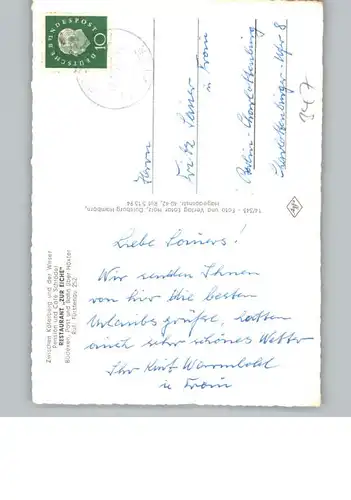 DEUTSCHE BUNDESPOST
10
Herrn
Fritz
u Frau
Berlin-Charlottenburg
Charlottenburger-Ufer 8
347
14/345 - Foto und Verlag Lothar Hotz, Duisburg Hamborn,
40-42, Ruf 5 13 94
Zwischen Köterberg und der Weser
Pension und Café Böddeker
RESTAURANT „ZUR EICHE"
Bödexen, Post und Bahn über Höxter
Ruf: Fürstenau 252
Liebe
Wir senden Ihnen
von hier die besten
Urlaubsgrüße, hatten
auch sehr schönes Wetter
Ihr Kurt Warmbold
u Frau